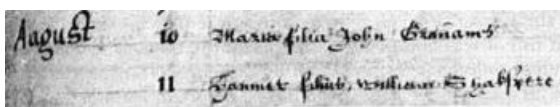 August 10 Maria filia John Granams
11 Hamnet filius William Shakspere